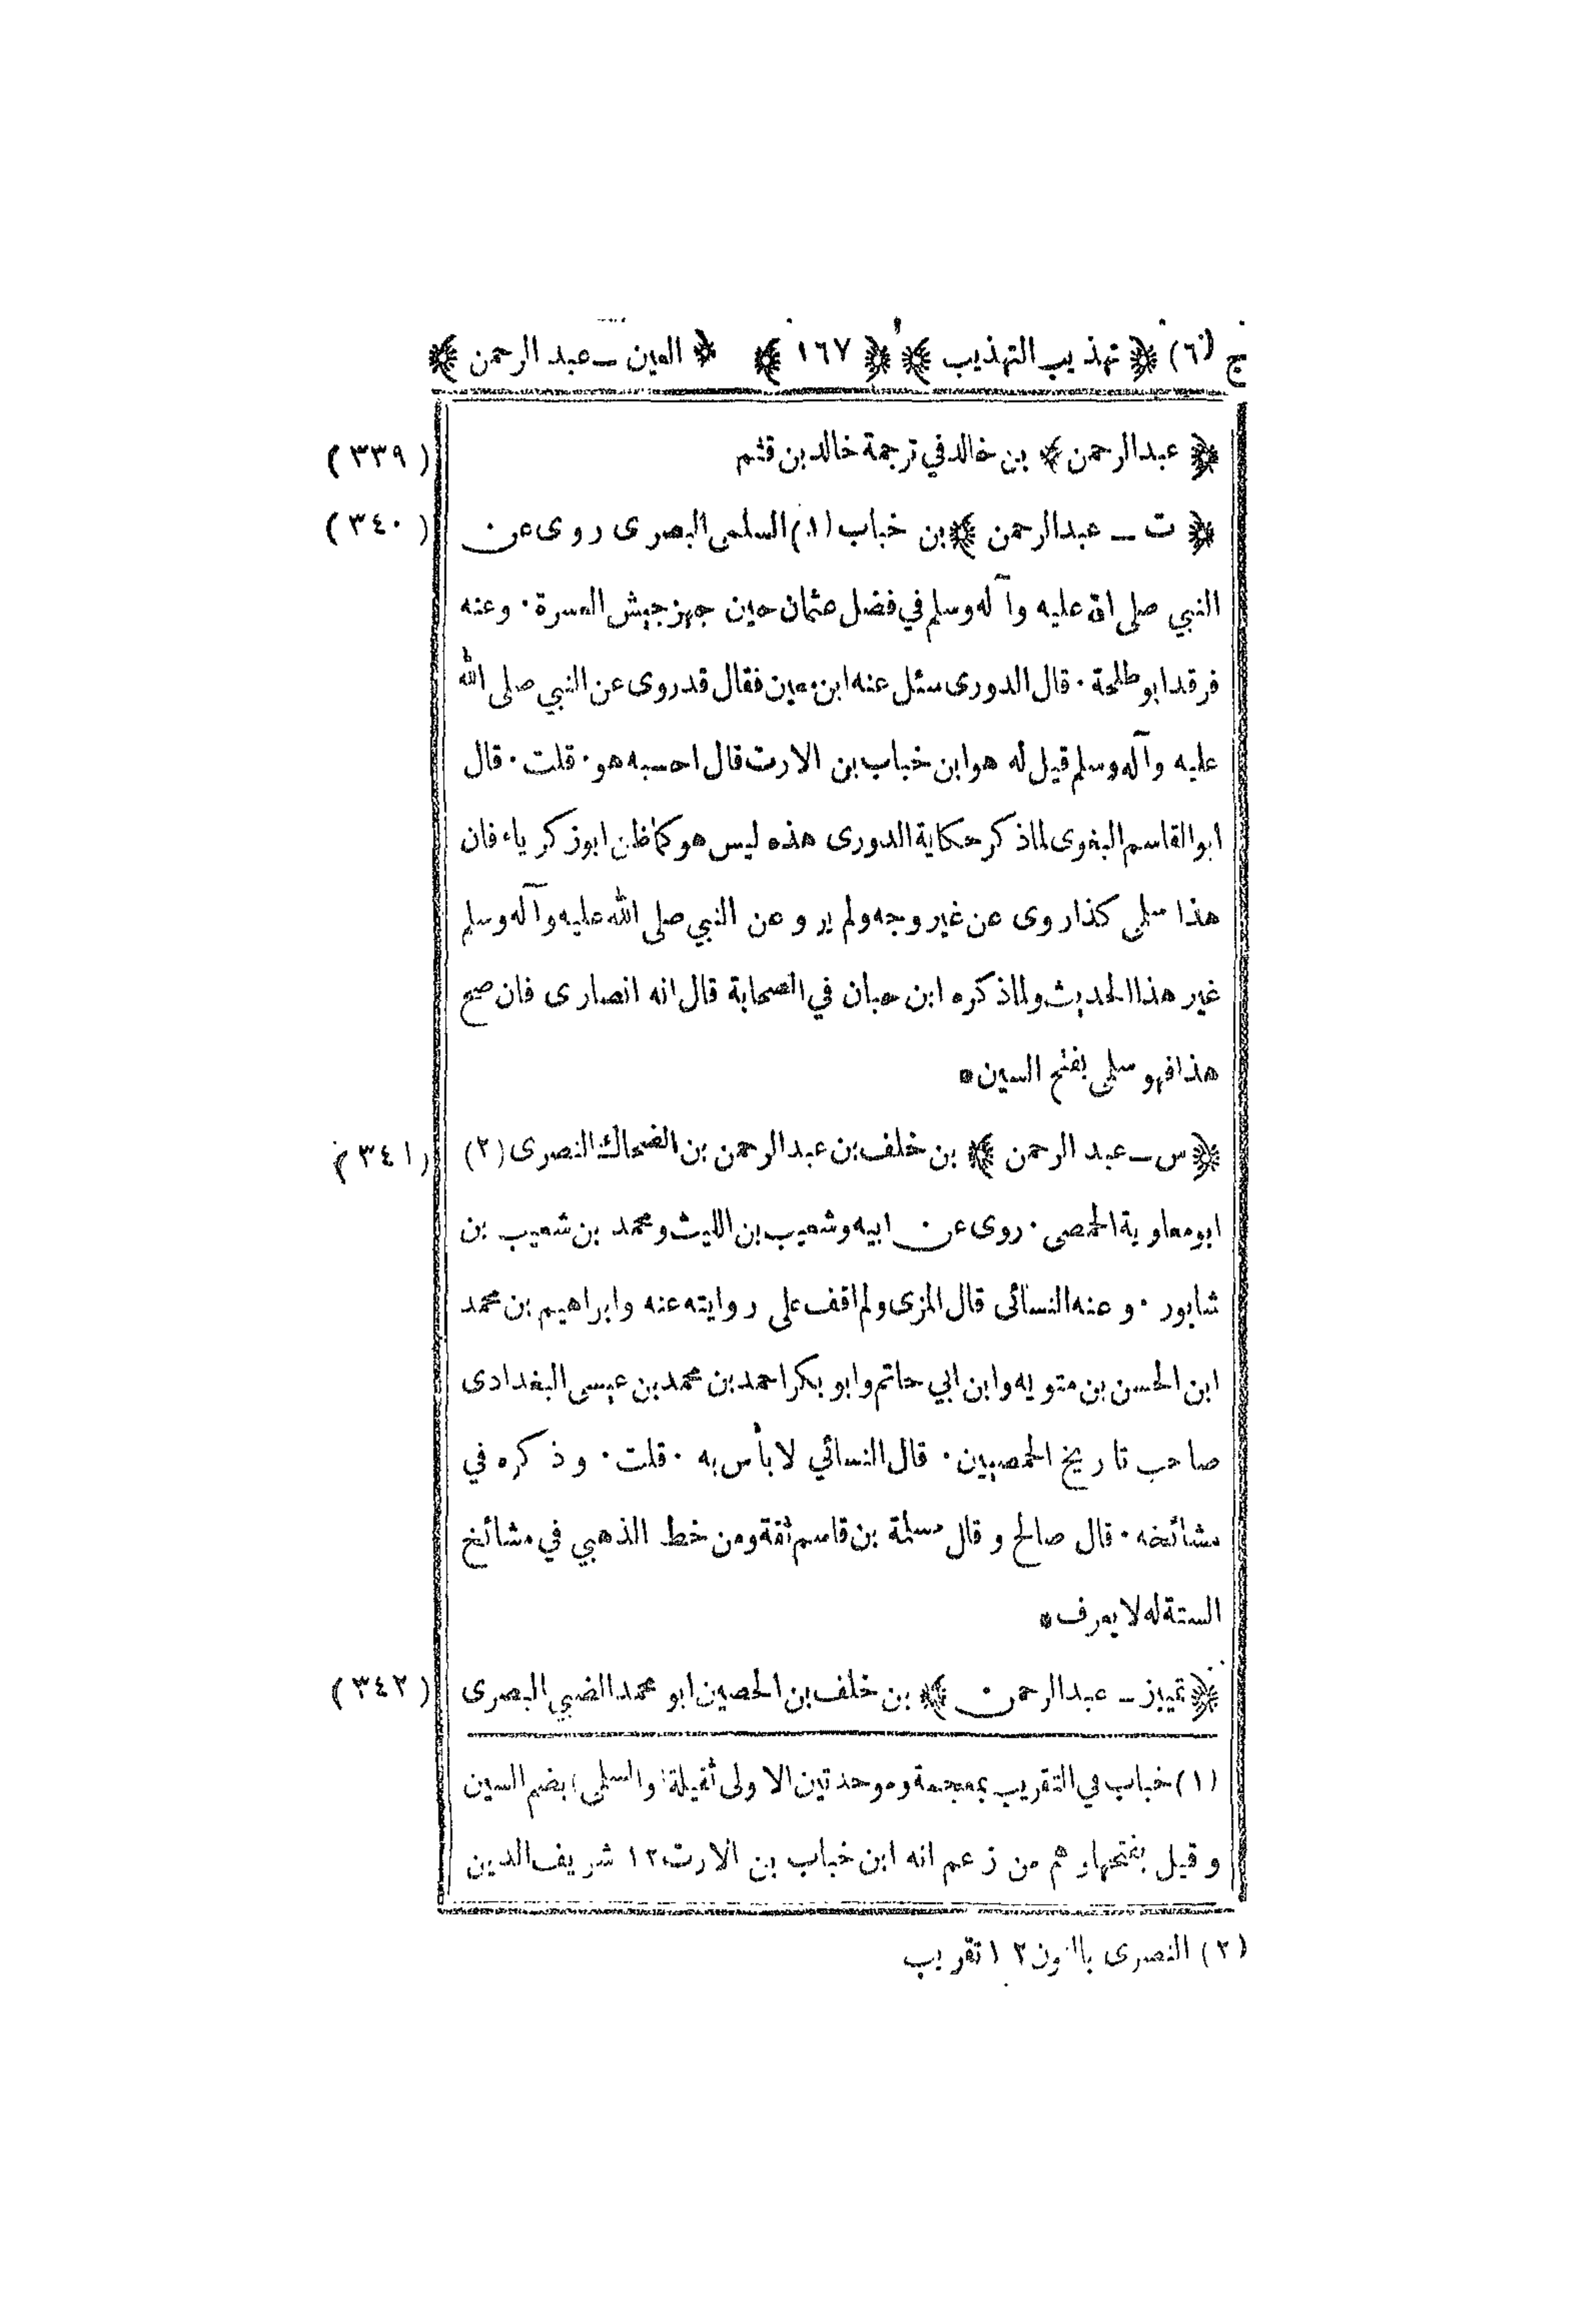 ج (٦) ﴿ تهذيب التهذيب ﴾ ﴿ ١٦٧ ﴾ ﴿ العين ــ عبد الرحمن ﴾
﴿ عبدالرحمن ﴾ بن خالد في ترجمة خالد بن قثم (٣٣٩)
﴿ ت ــ عبدالرحمن ﴾ بن خباب (١) السلمى البصرى روى عن (٣٤٠)
النبي صلى الله عليه وآله وسلم في فضل عثمان حين جهز جيش العسرة · وعنه
فرقد ابو طلحة · قال الدورى سئل عنه ابن معين فقال قد روى عن النبي صلى الله
عليه وآله وسلم قيل له هو ابن خباب بن الارت قال احسبه هو · قلت · قال
ابو القاسم البغوى لما ذكر حكاية الدورى هذه ليس هو كما ظن ابو زكرياء فان
هذا سلمي كذا روى عن غير وجه ولم يرو عن النبي صلى الله عليه وآله وسلم
غير هذا الحديث ولما ذكره ابن حبان في الصحابة قال انه انصارى فان صح
هذا فهو سلمي بفتح السين *
﴿ س ــ عبد الرحمن ﴾ بن خلف بن عبد الرحمن بن الضحاك النصرى (٢) (٣٤١)
ابو معاوية الحمصى · روى عن ابيه وشعيب بن الليث ومحمد بن شعيب بن
شابور · وعنه النسائى قال المزى ولم اقف على روايته عنه وابراهيم بن محمد
ابن الحسن بن متويه وابن ابي حاتم وابو بكر احمد بن محمد بن عيسى البغدادى
صاحب تاريخ الحمصيين · قال النسائي لا بأس به · قلت · وذكره في
مشائخه · قال صالح وقال مسلمة بن قاسم ثقة ومن خط الذهبي في مشائخ
الستة له لا يعرف *
﴿ تمييز ــ عبدالرحمن ﴾ بن خلف بن الحصين ابو محمد الضبي البصرى (٣٤٢)
(١) خباب في التقريب بمعجمة وموحدتين الاولى ثقيلة (والسلمى) بضم السين
وقيل بفتحها وهم من زعم انه ابن خباب بن الارت ١٢ شريف الدين
(٢) النصرى بالنون ١٢ تقريب